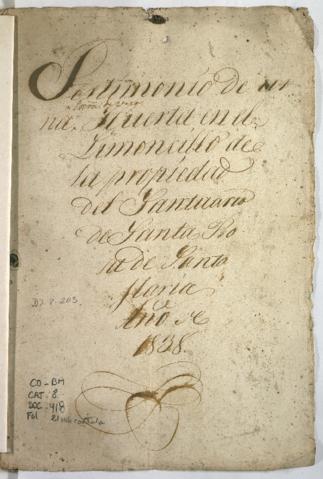 Testimonio de u
na Huerta en el
Limoncillo de
la propiedad
del Santuario
de Santa Ro
sa de Santa
Maria
Año de
1838.
D7.8.203.
CO-BM
CAT. 8
DOC. 418
Fol 21